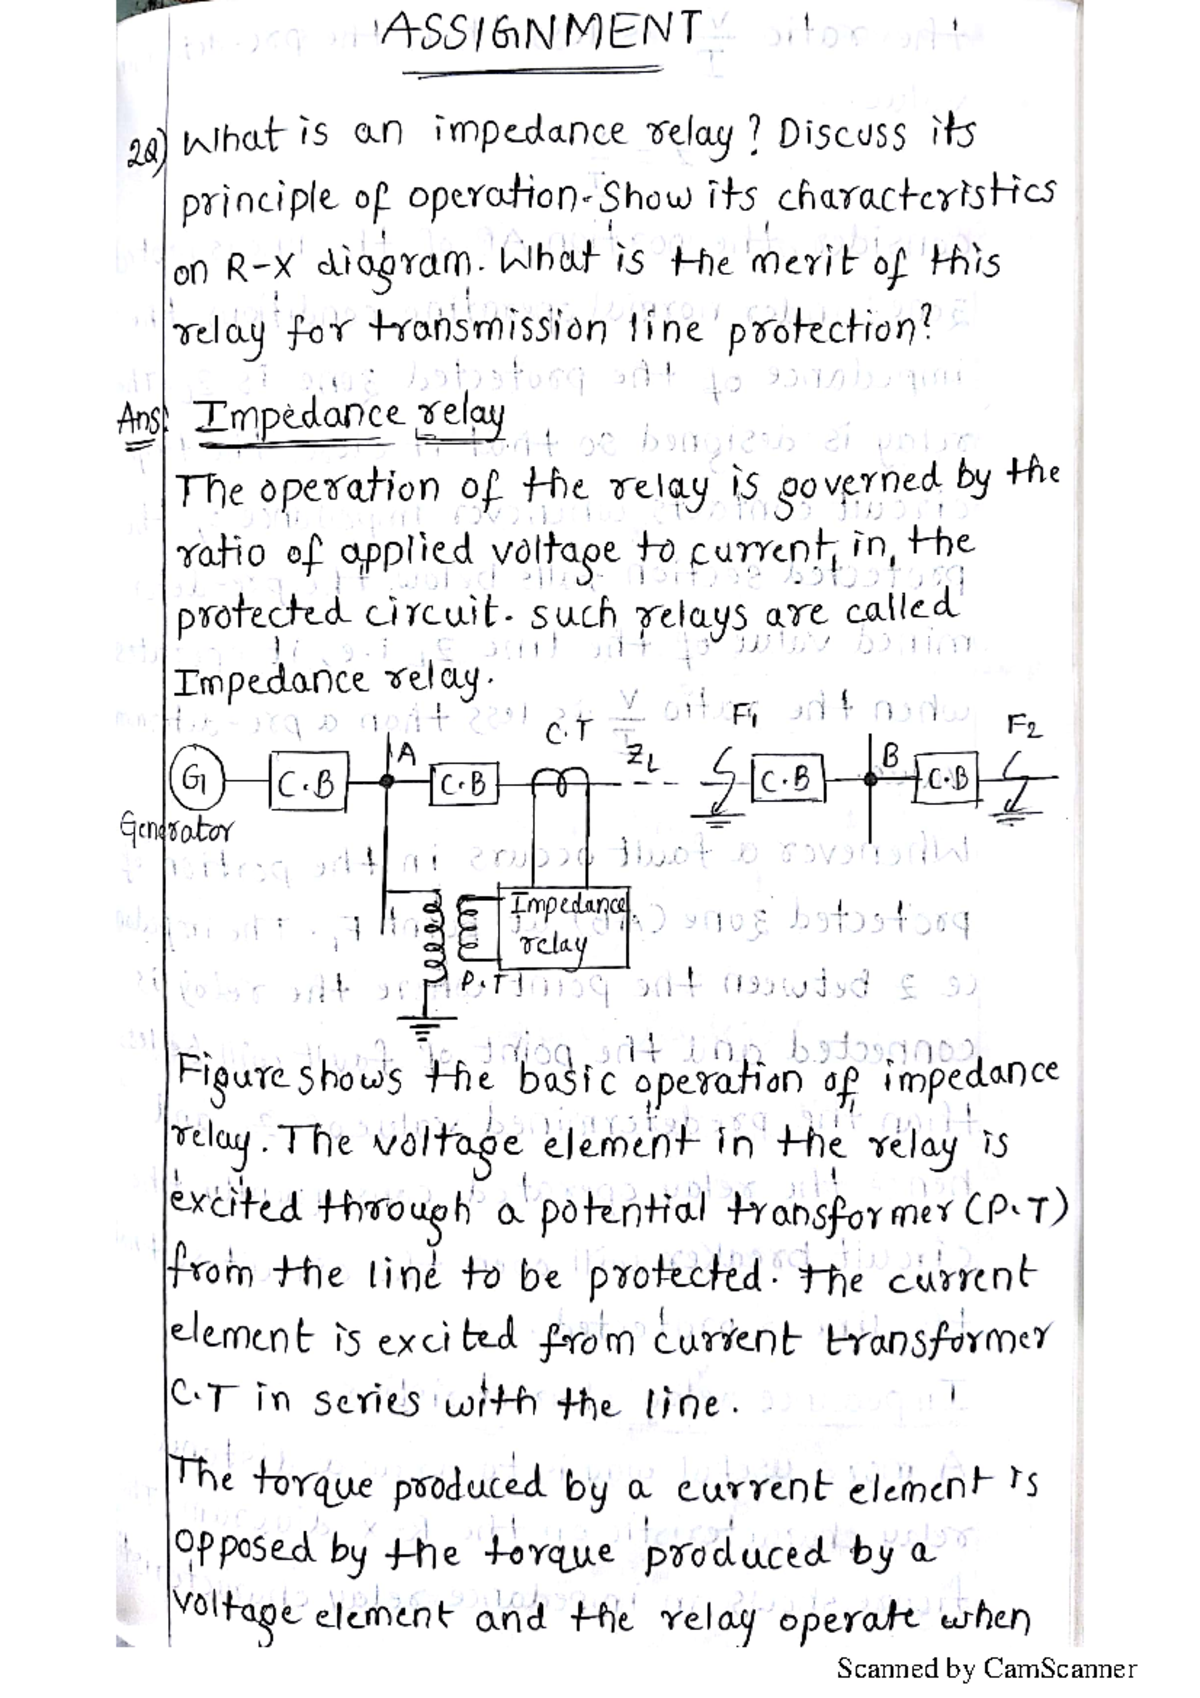 ASSIGNMENT
2Q) What is an impedance relay? Discuss its
principle of operation. Show its characteristics
on R-X diagram. What is the merit of this
relay for transmission line protection?
Ans: Impedance relay
The operation of the relay is governed by the
ratio of applied voltage to current, in, the
protected circuit. such relays are called
Impedance relay.
C.T F1 F2
A ZL B
G C.B C.B C.B C.B
Generator
Impedance
relay
P.T
Figure shows the basic operation of impedance
relay. The voltage element in the relay is
excited through a potential transformer (P.T)
from the line to be protected. The current
element is excited from current transformer
C.T in series with the line.
The torque produced by a current element is
opposed by the torque produced by a
voltage element and the relay operate when
Scanned by CamScanner